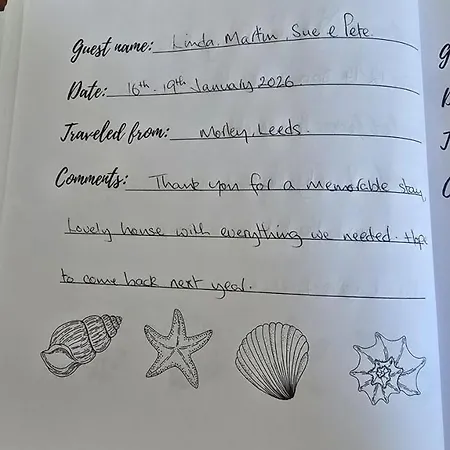 Guest name: Linda, Martin, Sue & Pete.
Date: 16th - 19th January 2026.
Traveled from: Morley, Leeds.
Comments: Thank you for a memorable stay,
Lovely house with everything we needed. Hope
to come back next year.